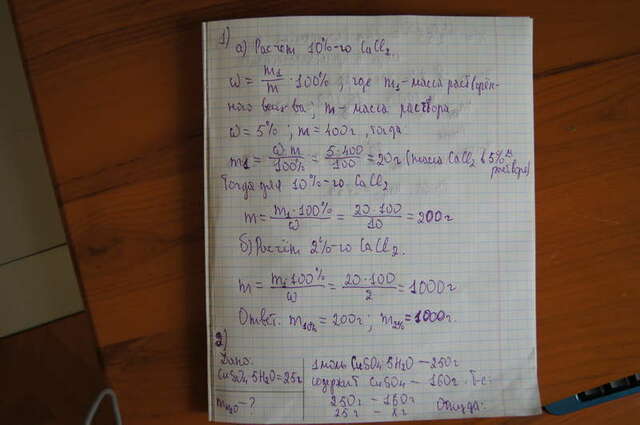 1)
а) Расчёт 10%-го CaCl2.
ω = m1/m · 100%, где m1 - масса растворён-
ного вещ-ва; m - масса раствора
ω = 5%; m = 400г, тогда
m1 = ω·m/100% = 5·400/100 = 20г (масса CaCl2 в 5%-м растворе)
Тогда для 10%-го CaCl2
m = m1·100%/ω = 20·100/10 = 200г
б) Расчёт 2%-го CaCl2.
m = m1·100%/ω = 20·100/2 = 1000г
Ответ: m10% = 200г; m2% = 1000г.
2)
Дано:
CuSO4·5H2O = 25г
mH2O - ?
1 моль CuSO4·5H2O — 250г
содержит CuSO4 — 160г. Т.е.
250г - 160г
25г - xг Откуда: